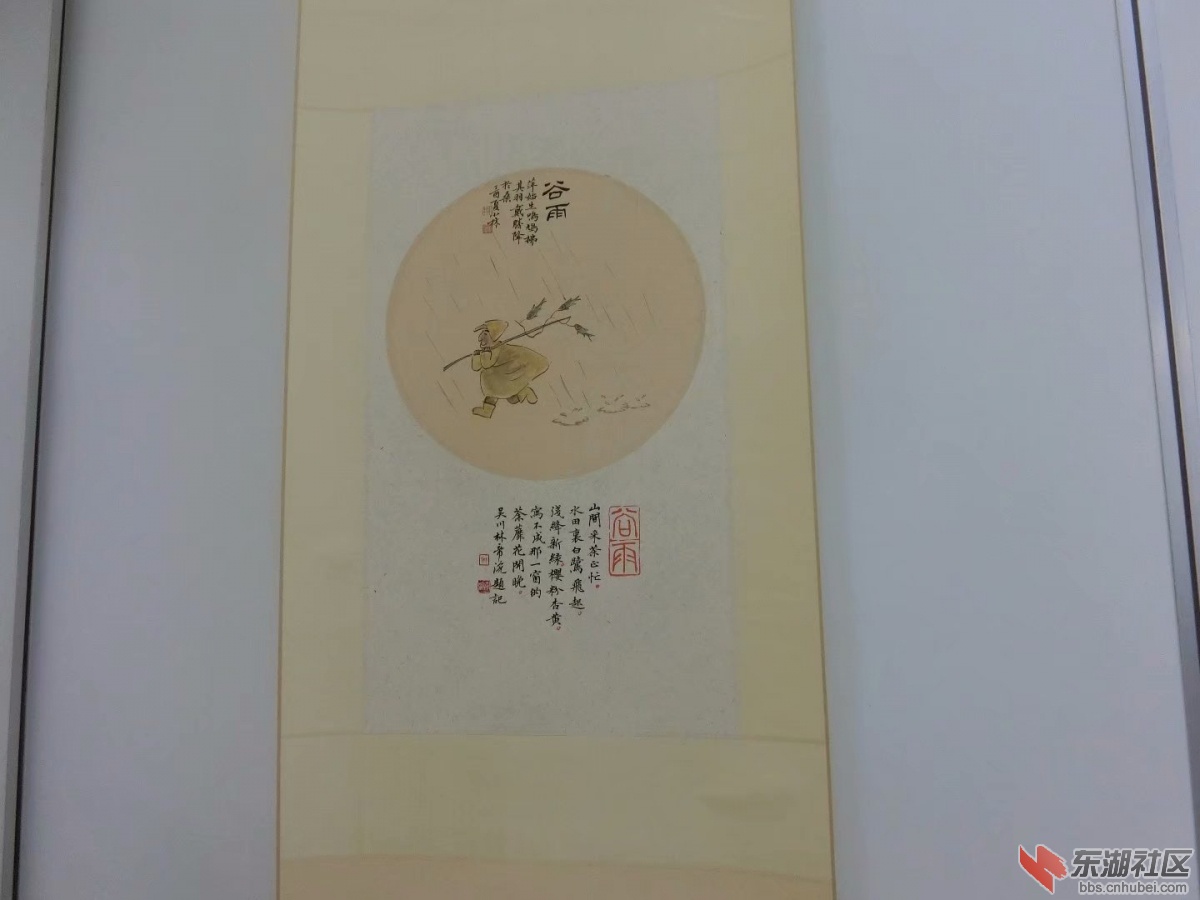 谷雨
萍始生鸣鸠拂
其羽戴胜降
于桑
谷雨
山间采茶正忙。
水田裏白鹭飛起。
浅绛新绿櫻粉杏黄。
寫不成那一窗的
荼蘼花開晚。
吴川林帝浣題記
东湖社区
bbs.cnhubei.com